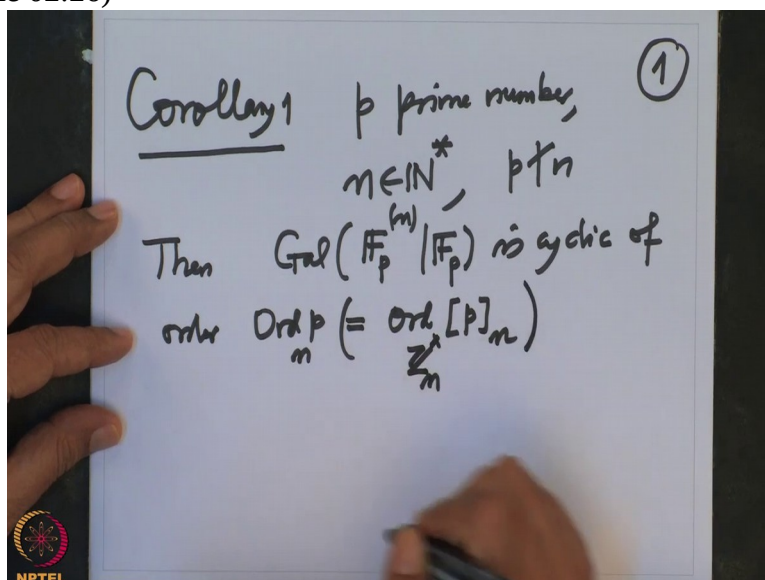 Corollary 1 p prime number, ①
n ∈ ℕ*, p ∤ n
Then Gal(𝔽_p^(n) | 𝔽_p) is cyclic of
order Ord_n p (= ord_{ℤ_n^×} [p]_n)
NPTEL